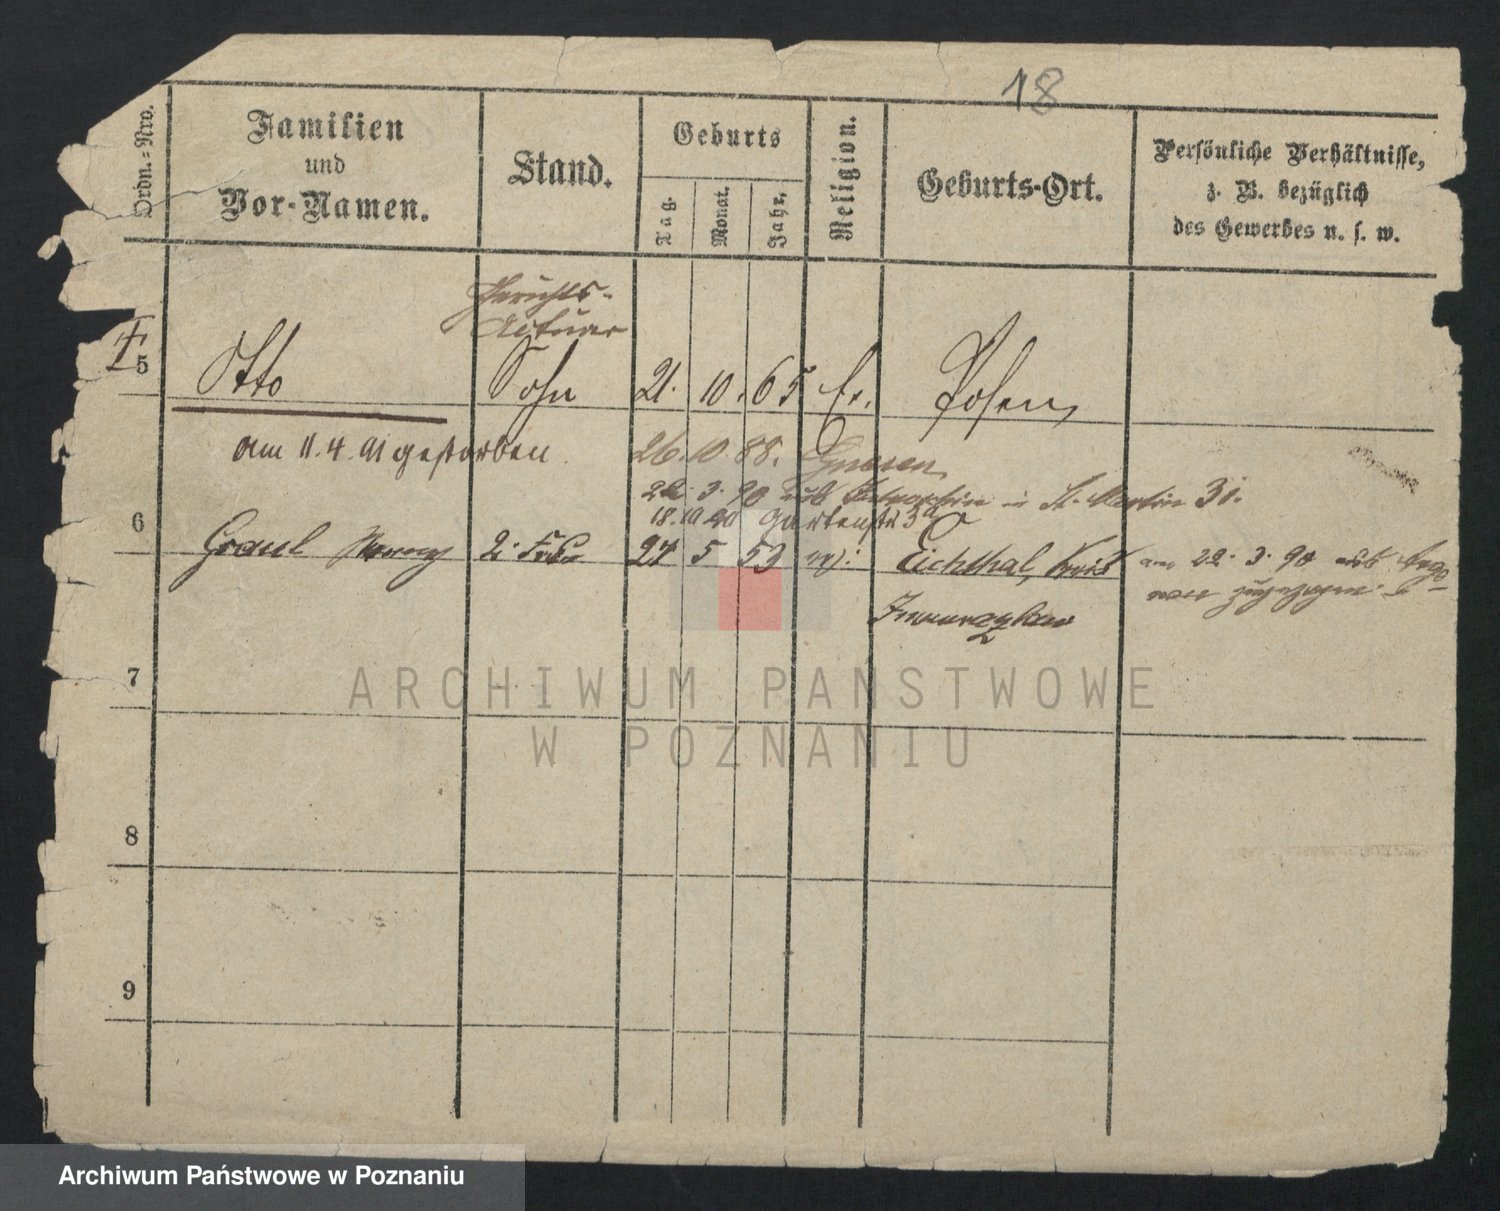 18
Ordn.-Nro.
Familien
und
Vor-Namen.
Stand.
Geburts
Tag.
Monat.
Jahr.
Religion.
Geburts-Ort.
Persönliche Verhältnisse,
z. B. bezüglich
des Gewerbes u. s. w.
Gerichts-
Actuar
5 Otto Sohn 21. 10. 65 Ev. Posen
am 11.4.91 gestorben
26.10.88. Gnesen
22. 3. 90 aus in St. Martin 31.
18.10.90 Gartenstr 3a
6
Graul 2. Frau 27 5 53 Eichthal, Kreis am 22. 3. 90 aus
zugezogen
7
8
9
ARCHIWUM PAŃSTWOWE
W POZNANIU
Archiwum Państwowe w Poznaniu